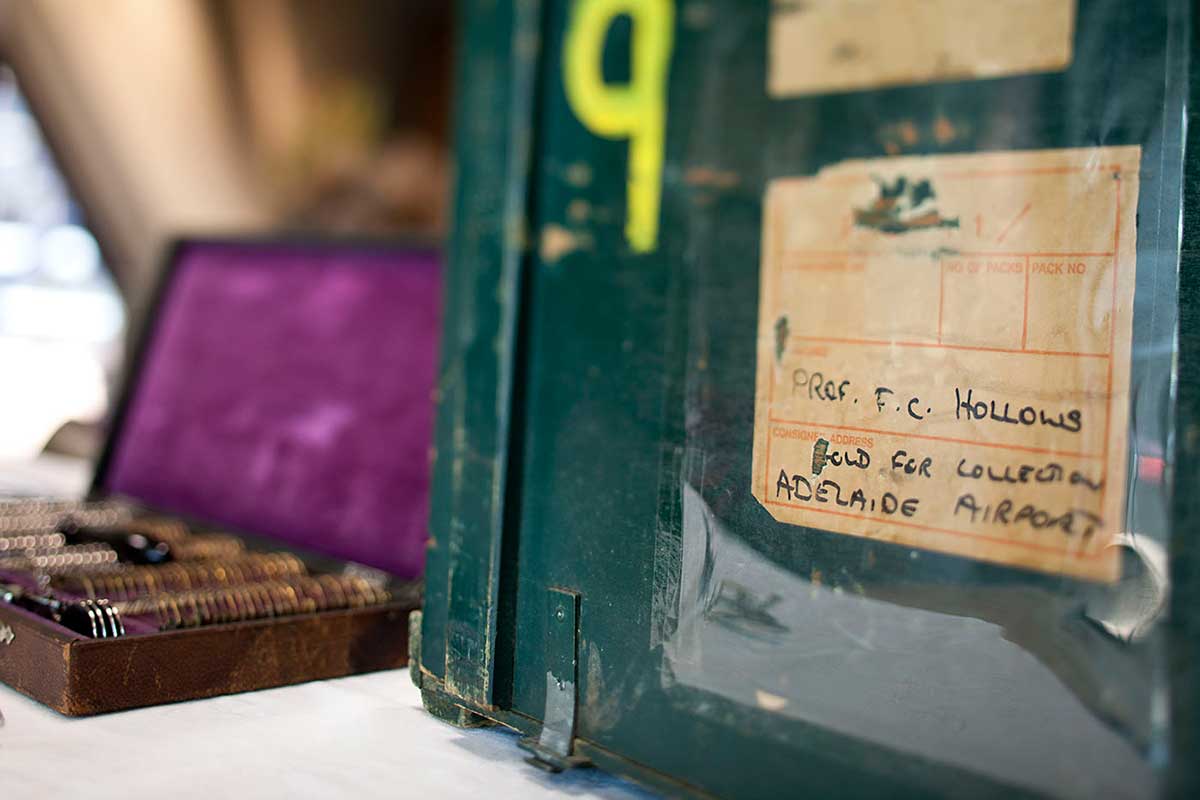 9
1/
NO OF PACKS PACK NO
PROF. F.C. HOLLOWS
CONSIGNEE ADDRESS
HOLD FOR COLLECTION
ADELAIDE AIRPORT